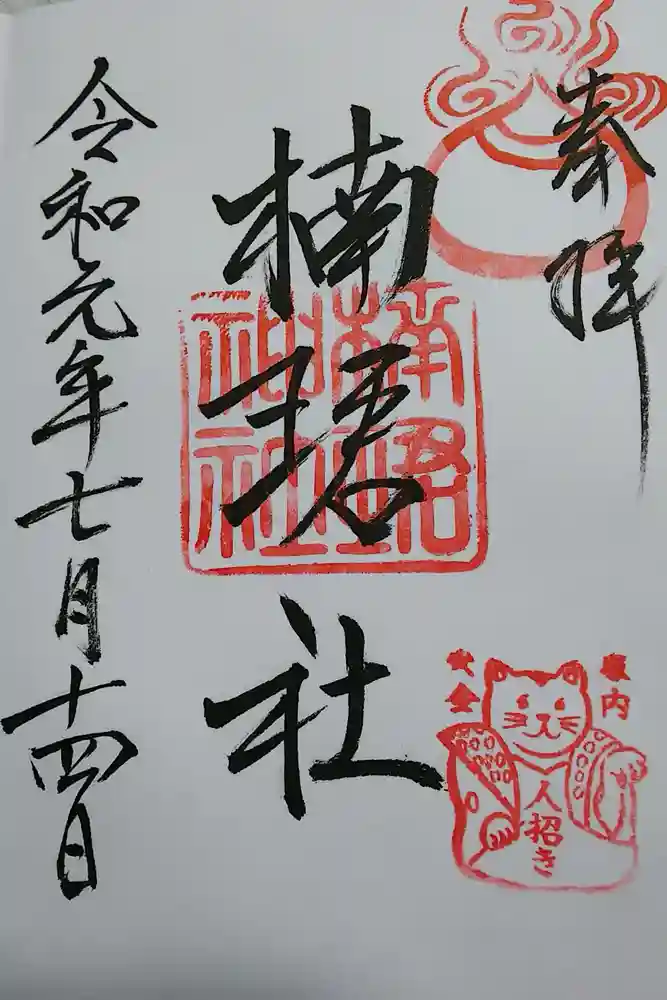 奉拝
楠珺社
楠珺社神社
家内
安全
人招き
令和元年七月十四日